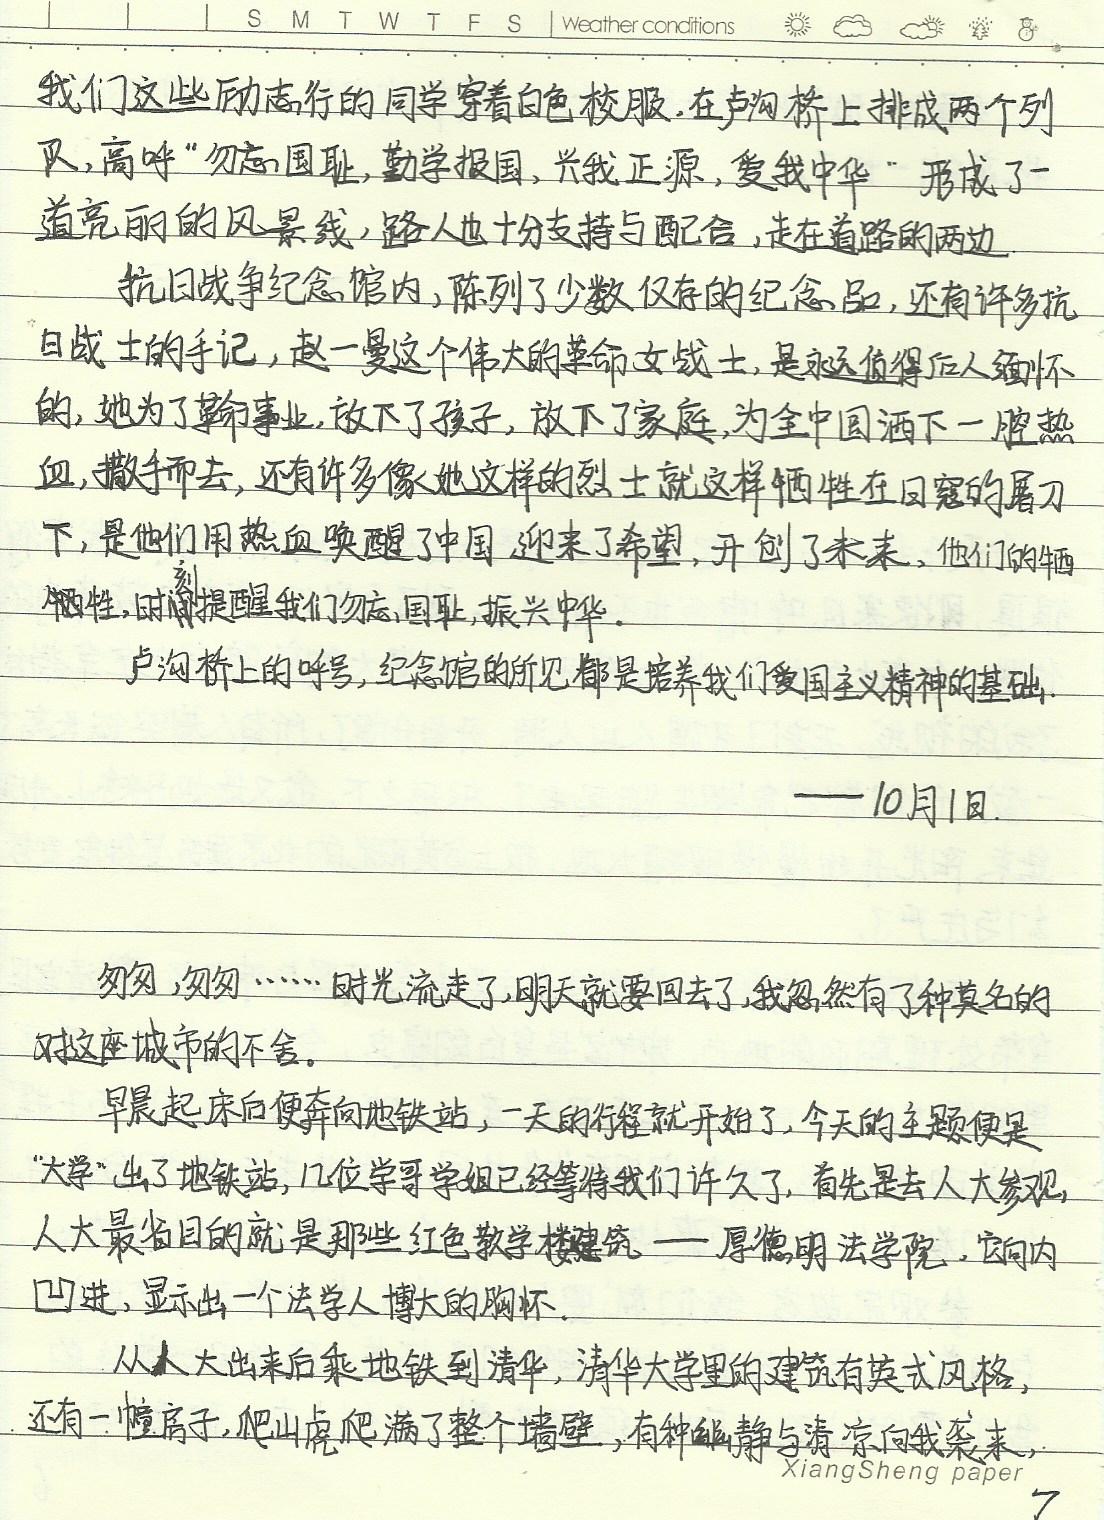 S M T W T F S Weather conditions
我们这些励志行的同学穿着白色校服.在卢沟桥上排成两个列
队,高呼"勿忘国耻,勤学报国,兴我正源,爱我中华"形成了一
道亮丽的风景线,路人也十分支持与配合,走在道路的两边.
抗日战争纪念馆内,陈列了少数仅存的纪念品,还有许多抗
日战士的手记,赵一曼这个伟大的革命女战士,是永远值得后人缅怀
的,她为了革命事业,放下了孩子,放下了家庭,为全中国洒下一腔热
血,撒手而去,还有许多像她这样的烈士就这样牺牲在日寇的屠刀
下,是他们用热血唤醒了中国 迎来了希望,开创了未来、他们的牺
牺牲,时刻提醒我们勿忘国耻,振兴中华.
卢沟桥上的呼号,纪念馆的所见都是培养我们爱国主义精神的基础.
——10月1日.
匆匆,匆匆……时光流走了,明天就要回去了,我忽然有了种莫名的
对这座城市的不舍。
早晨起床后便奔向地铁站,一天的行程就开始了,今天的主题便是
"大学"出了地铁站,几位学哥学姐已经等待我们许久了,首先是去人大参观,
人大最省目的就是那些红色教学楼建筑——厚德明法学院.它向内
凹进,显示出一个法学人博大的胸怀.
从人大出来后乘地铁到清华,清华大学里的建筑有英式风格,
还有一幢房子,爬山虎爬满了整个墙壁,有种幽静与清凉向我袭来,
XiangSheng paper
7